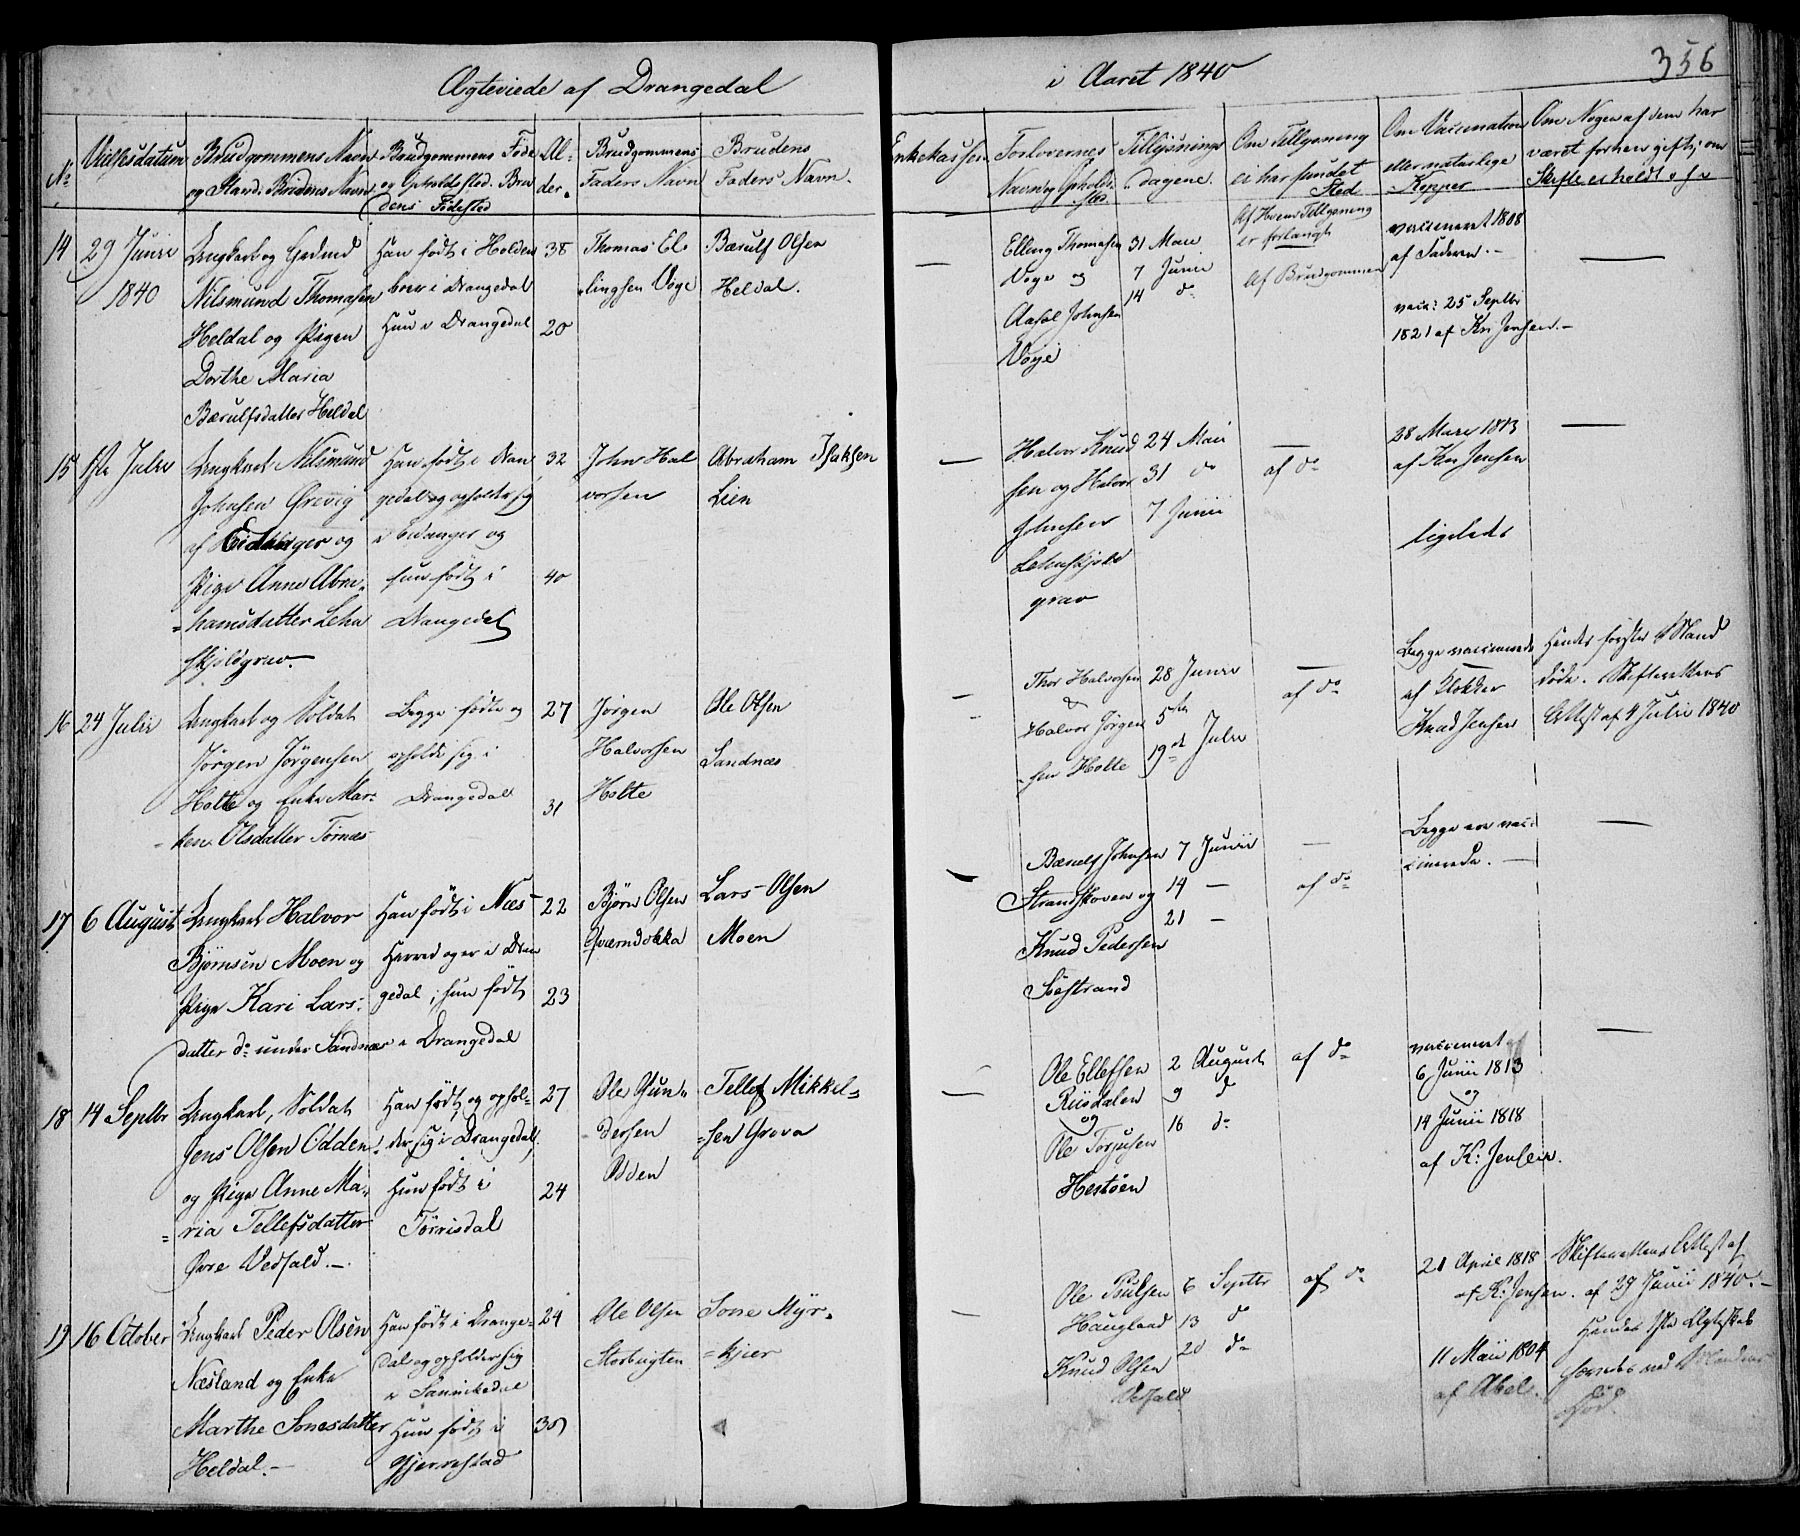 Ægteviede af Drangedal
i Aaret 1840
356
No
Vielsesdatum
Brudgommens Navn
og Stand. Brudens Navn
Brudgommens Føde
og Opholdssted. Bru
dens Fødested
Al-
der.
Brudgommens
Faders Navn
Brudens
Faders Navn.
Enkekassen
Forlovernes
Navn og Opholds
sted
Tillysnings
dagene.
Om Tillysning
ei har fundet
Sted
Om Vaccination
eller naturlige
Kopper
Om Nogen af dem har
været forhen gift; om
Skifte er holdt
14
29 Junii
1840
Ungkarl og
Nilsmund Thomasen
Heldal og Pigen
Dorthe Maria
Bærulfsdatter Heldal
Han født i Holden
boer i Drangedal
Hun i Drangedal
38
20
Thomas El
lingsen Voje
Bærulf Olsen
Heldal.
—
Elling Thomasen
Voje og
Aasol Johnsen
Voje
31 Maii
7 Junii
14 do
Af Hvem Tillysning
er forlangt
Af Brudgommen
vaccineret 1808
af Faderen. —
vacc: 25 Septbr
1821 af Kn Jensen. —
—
15
Julii
Ungkarl Nilsmund
Johnsen Grevig
af Eidanger og
Pige Anne Abra
hamsdatter Lehn
skjoldgrav. —
Han født i Dran
gedal og opholder sig
i Eidanger og
hun født i
Drangedal
32
40
John Hal
vorsen
Abraham Isaksen
Lien
—
Halvor Knud
sen og Halvor
Johnsen
Lehnskjold
grav
24 Maii
31 do
7 Junii
—
af do
28 Marz 1813
af Kn Jensen
ligeledes
—
16
24 Julii
Ungkarl og Soldat
Jørgen Jørgensen
Holte og Enke Mar-
ken Olsdatter Tørnæs
Begge fødte og
opholde sig i
Drangedal
27
31
Jørgen
Halvorsen
Holte
Ole Olsen
Sandnæs
—
Thor Halvorsen
&
Halvor Jørgen
sen Holte
28 Junii
5te
19de Julii
—
af do
Begge vaccinerede
af Klokker
Knud Jensen
Hendes første Mand
døde. Skifterettens
Attest af 4 Julii 1840
17
6 August
Ungkarl Halvor
Bjørnsen Moen og
Pige Kari Lars-
datter do under Sandnæs
Han født i Næs
Herred og er i Dran
gedal; hun født
i Drangedal
22
23
Bjørn Olsen
Qværndokka
Lars Olsen
Moen
—
Bærulf Johnsen
Strandskoven og
Knud Pedersen
Søestrand
7 Junii
14 —
21 —
—
af do
Begge ere vac-
cinerede. —
—
18
14 Septbr
Ungkarl, Soldat
Jens Olsen Odden
og Pige Anne Ma-
ria Tellefsdatter
Øvre Vedfald. —
Han født og ophol-
der sig i Drangedal,
Hun født i
Tørrisdal
27
24
Ole Gun-
dersen
Odden
Tellef Mikkel-
sen Grova
—
Ole Ellefsen
Riisdalen
og
Ole Torjusen
Hestøen
2 August
9 do
16 do
af do
vaccineret
6 Junii 1813
og
14 Junii 1818
af K: Jensen.
—
19
16 October
Ungkarl Peder Olsen
Næsland og Enke
Marthe Sonesdatter
Heldal. —
Han født i Drange-
dal og opholder sig
i Sannikedal
Hun født i
Gjerrestad
24
Ole Olsen
Storbugten
Sone Myr-
kjær
—
Ole Poulsen
Haugland
Knud Olsen
Vefald
6 Septbr
13 do
20 do
af do
21 April 1818
af K: Jensen.
11 Maii 1804
af Abel.
Skifterettens Attest af
af 29 Junii 1840. —
Hendes 1ste Ægteskab
hævedes ved Mandens
Død.